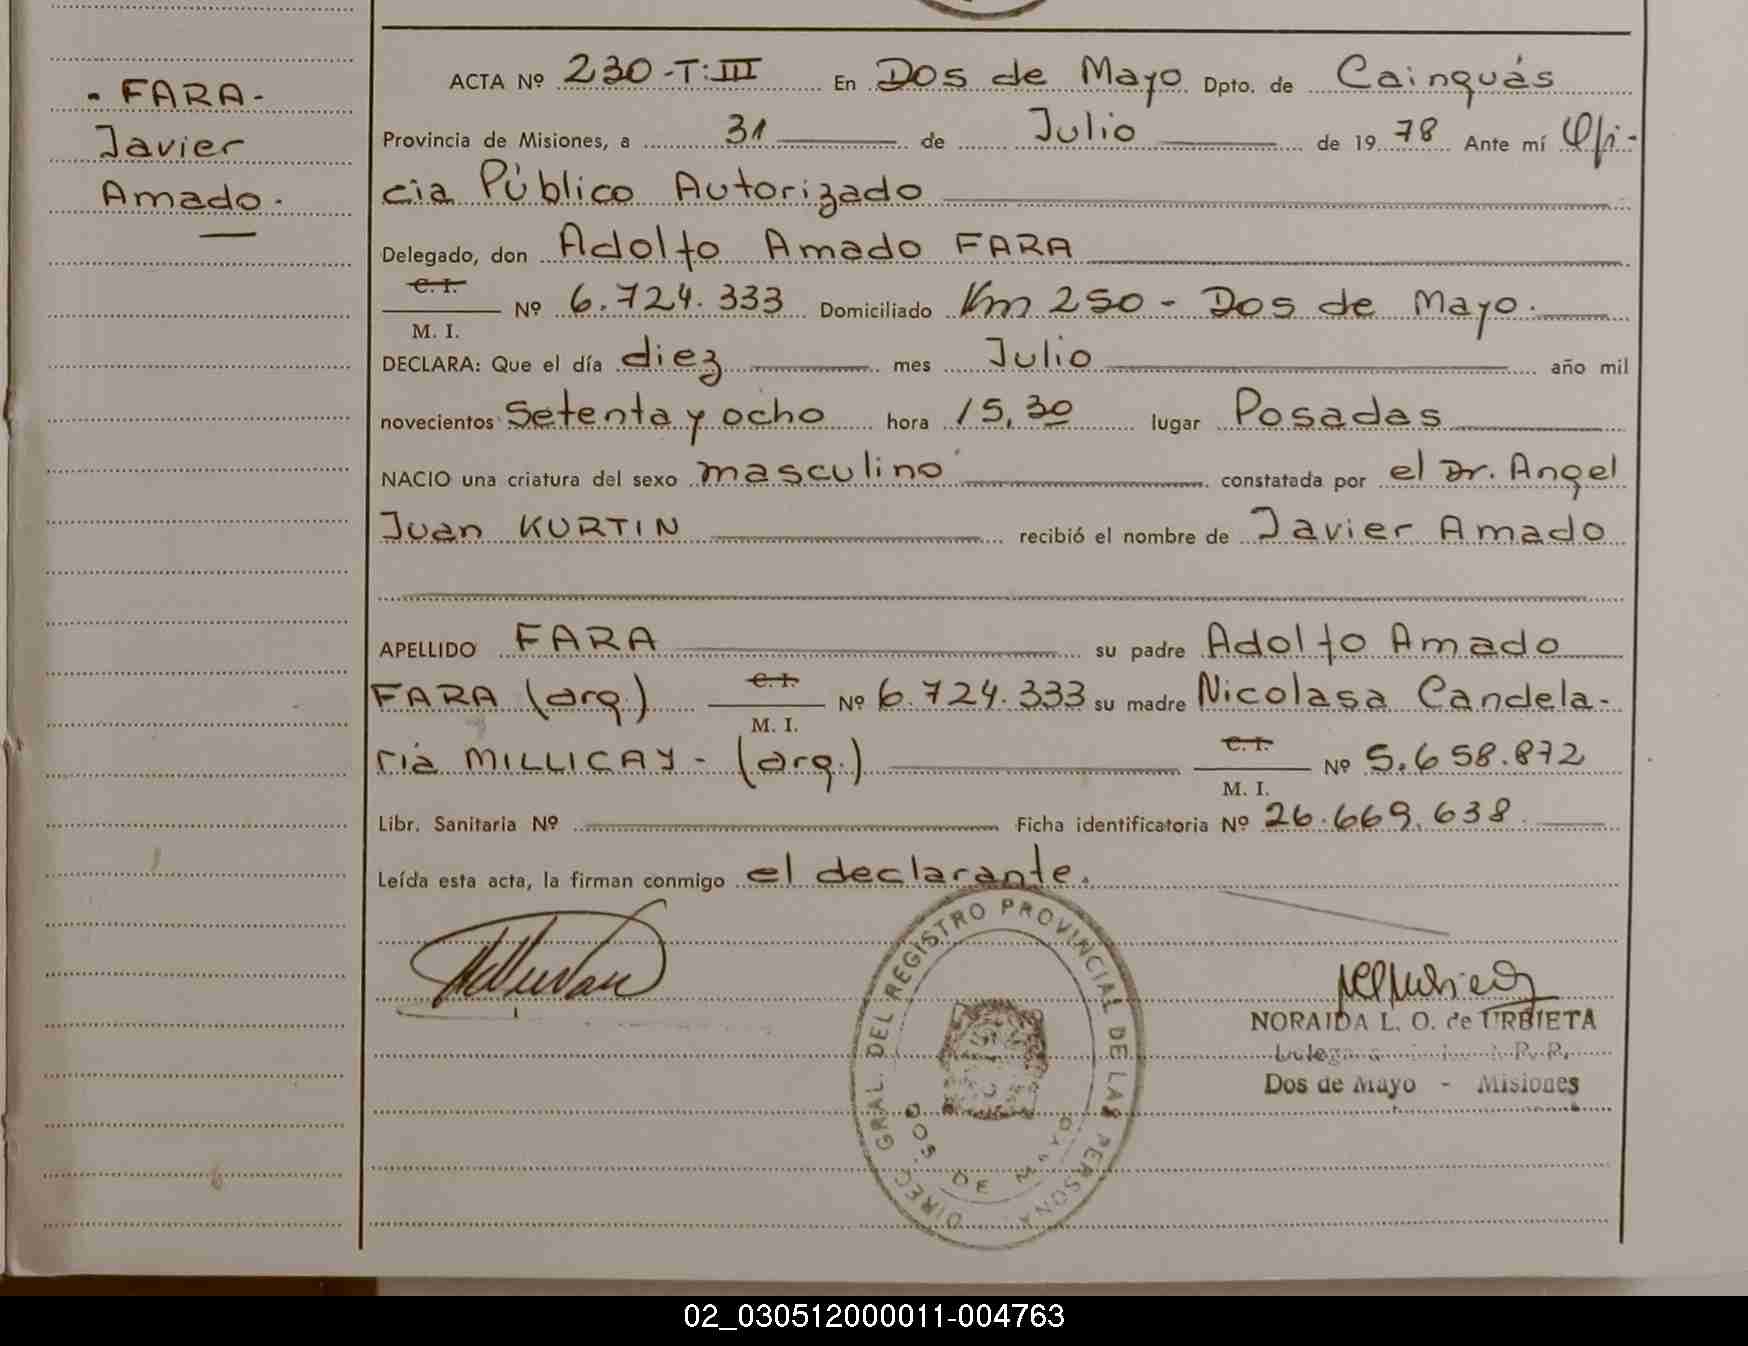 - FARA-
Javier
Amado.
ACTA Nº 230-T:III En Dos de Mayo Dpto. de Cainguás
Provincia de Misiones, a 31 de Julio de 1978 Ante mí Ofi-
cia Público Autorizado
Delegado, don Adolfo Amado FARA
C. I.
M. I. Nº 6.724.333 Domiciliado Km 250 - Dos de Mayo.
DECLARA: Que el día diez mes Julio año mil
novecientos Setenta y ocho hora 15,30 lugar Posadas
NACIO una criatura del sexo masculino constatada por el Dr. Angel
Juan KURTIN recibió el nombre de Javier Amado
APELLIDO FARA su padre Adolfo Amado
FARA (arg.) C. I. M. I. Nº 6.724.333 su madre Nicolasa Candela-
ria MILLICAY - (arg.) C. I. M. I. Nº 5.658.872
Libr. Sanitaria Nº Ficha identificatoria Nº 26.669.638
Leída esta acta, la firman conmigo el declarante.
DIREC. GRAL. DEL REGISTRO PROVINCIAL DE LAS PERSONA
DOS DE MAYO
NORAIDA L. O. de URBIETA
R. P.
Dos de Mayo - Misiones
02_030512000011-004763